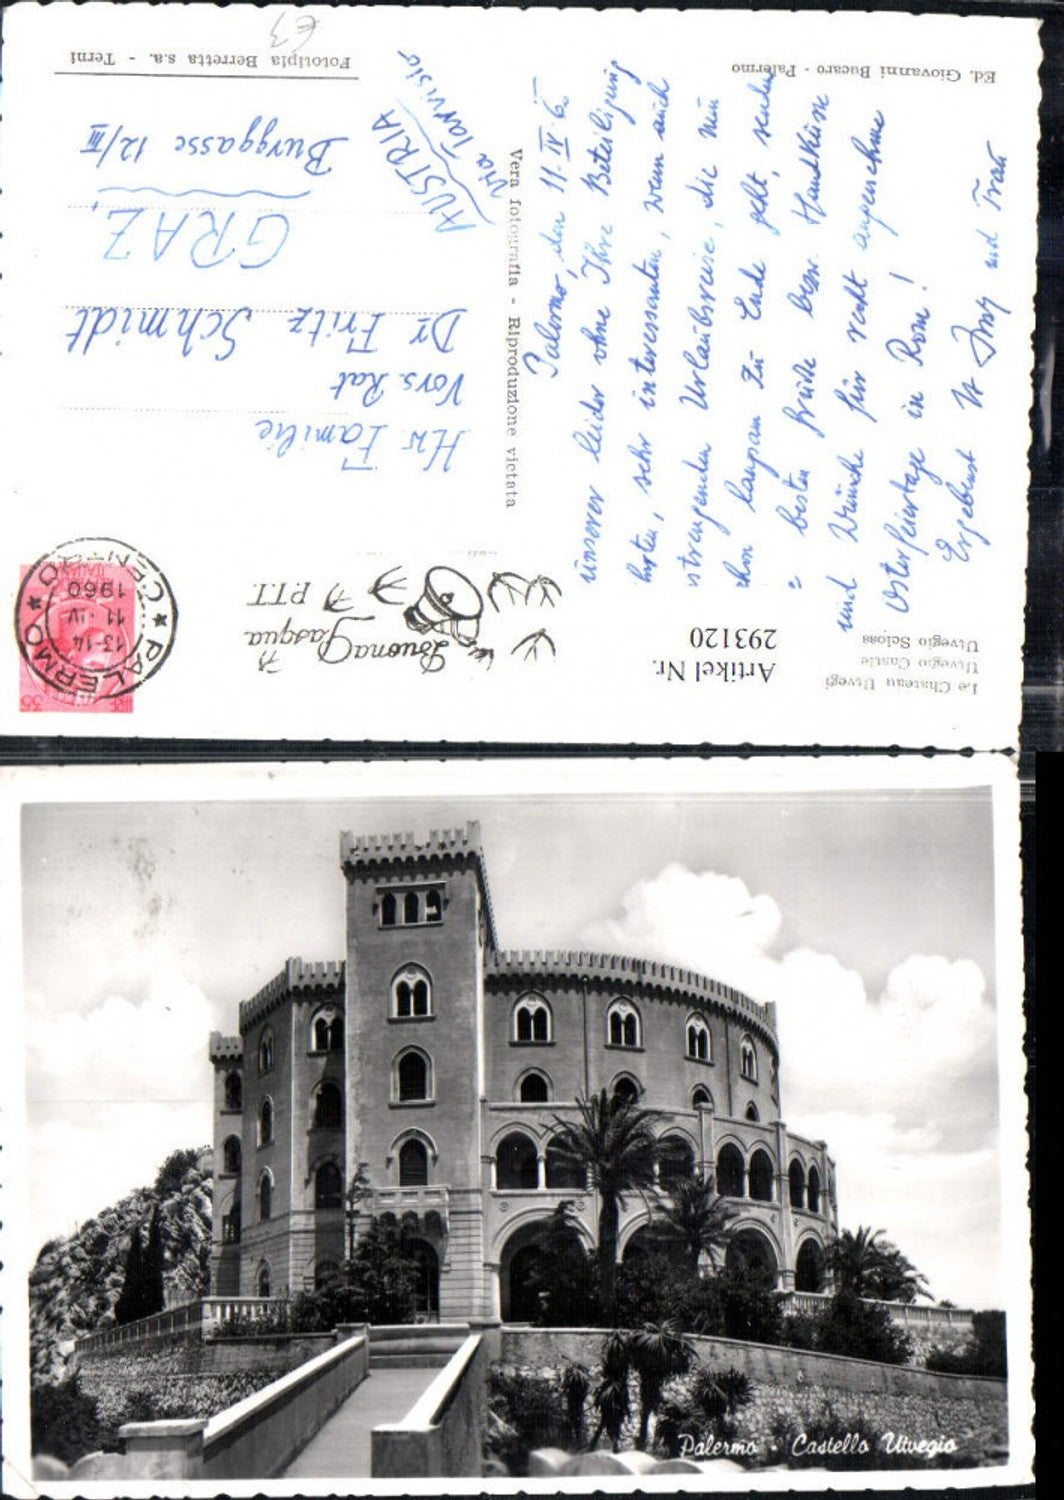 Ed. Giovanni Bucaro - Palermo
Fototipia Berretta s.a. - Terni
Vera fotografia - Riproduzione vietata
Le Chateau Utvegi
Utvegio Castle
Utvegio Scloss
Artikel Nr.
293120
Buona
Pasqua
P.T.T.
PALERMO CENTRO
13-14
11 IV
1960
35
€3
AUSTRIA
via Tarvisio
Hw. Familie
Vors. Rat
Dr Fritz Schmidt
GRAZ,
Burggasse 12/III
Palermo, den 11.IV.6
unserer leider ohne Ihre Beteiligung
sehr interessanten, wenn auch
strengenden Urlaubsreise, die nun
langsam zu Ende geht, senden
besten Grüße bezw. Handküsse
und Wünsche für recht angenehme
Osterfeiertage in Rom!
Ergebenst Ihr und Frau
Palermo - Castello Utvegio